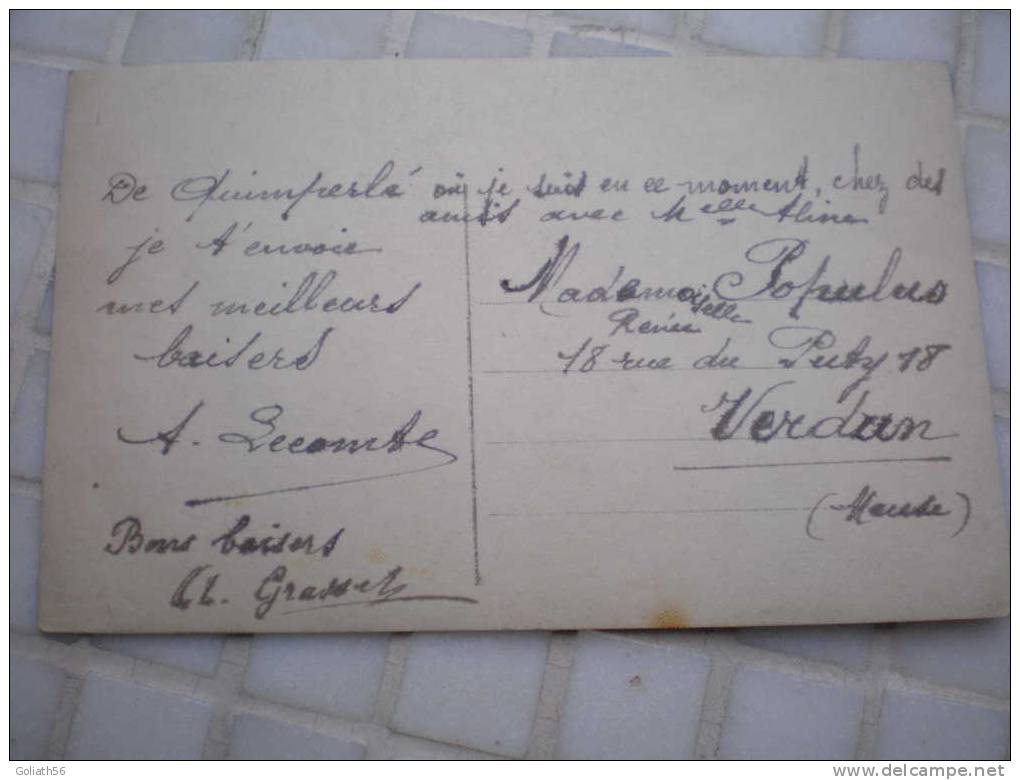 De Quimperlé où je suis en ce moment, chez des
amis avec Melle Aline
je t'envoie
mes meilleurs
baisers
A. Lecomte
Bons baisers
Grasset
Mademoiselle Populus
Renée
18 rue du Puty 18
Verdun
(Meuse)
Goliath56
www.delcampe.net